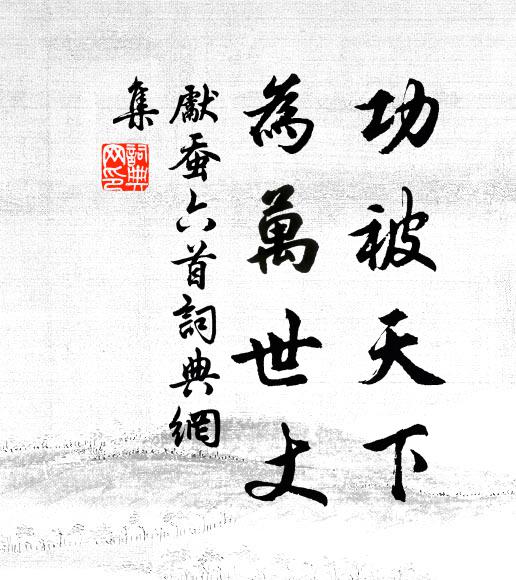 功被天下
為萬世文
獻蚕六首詞典網
集
詞典
网印